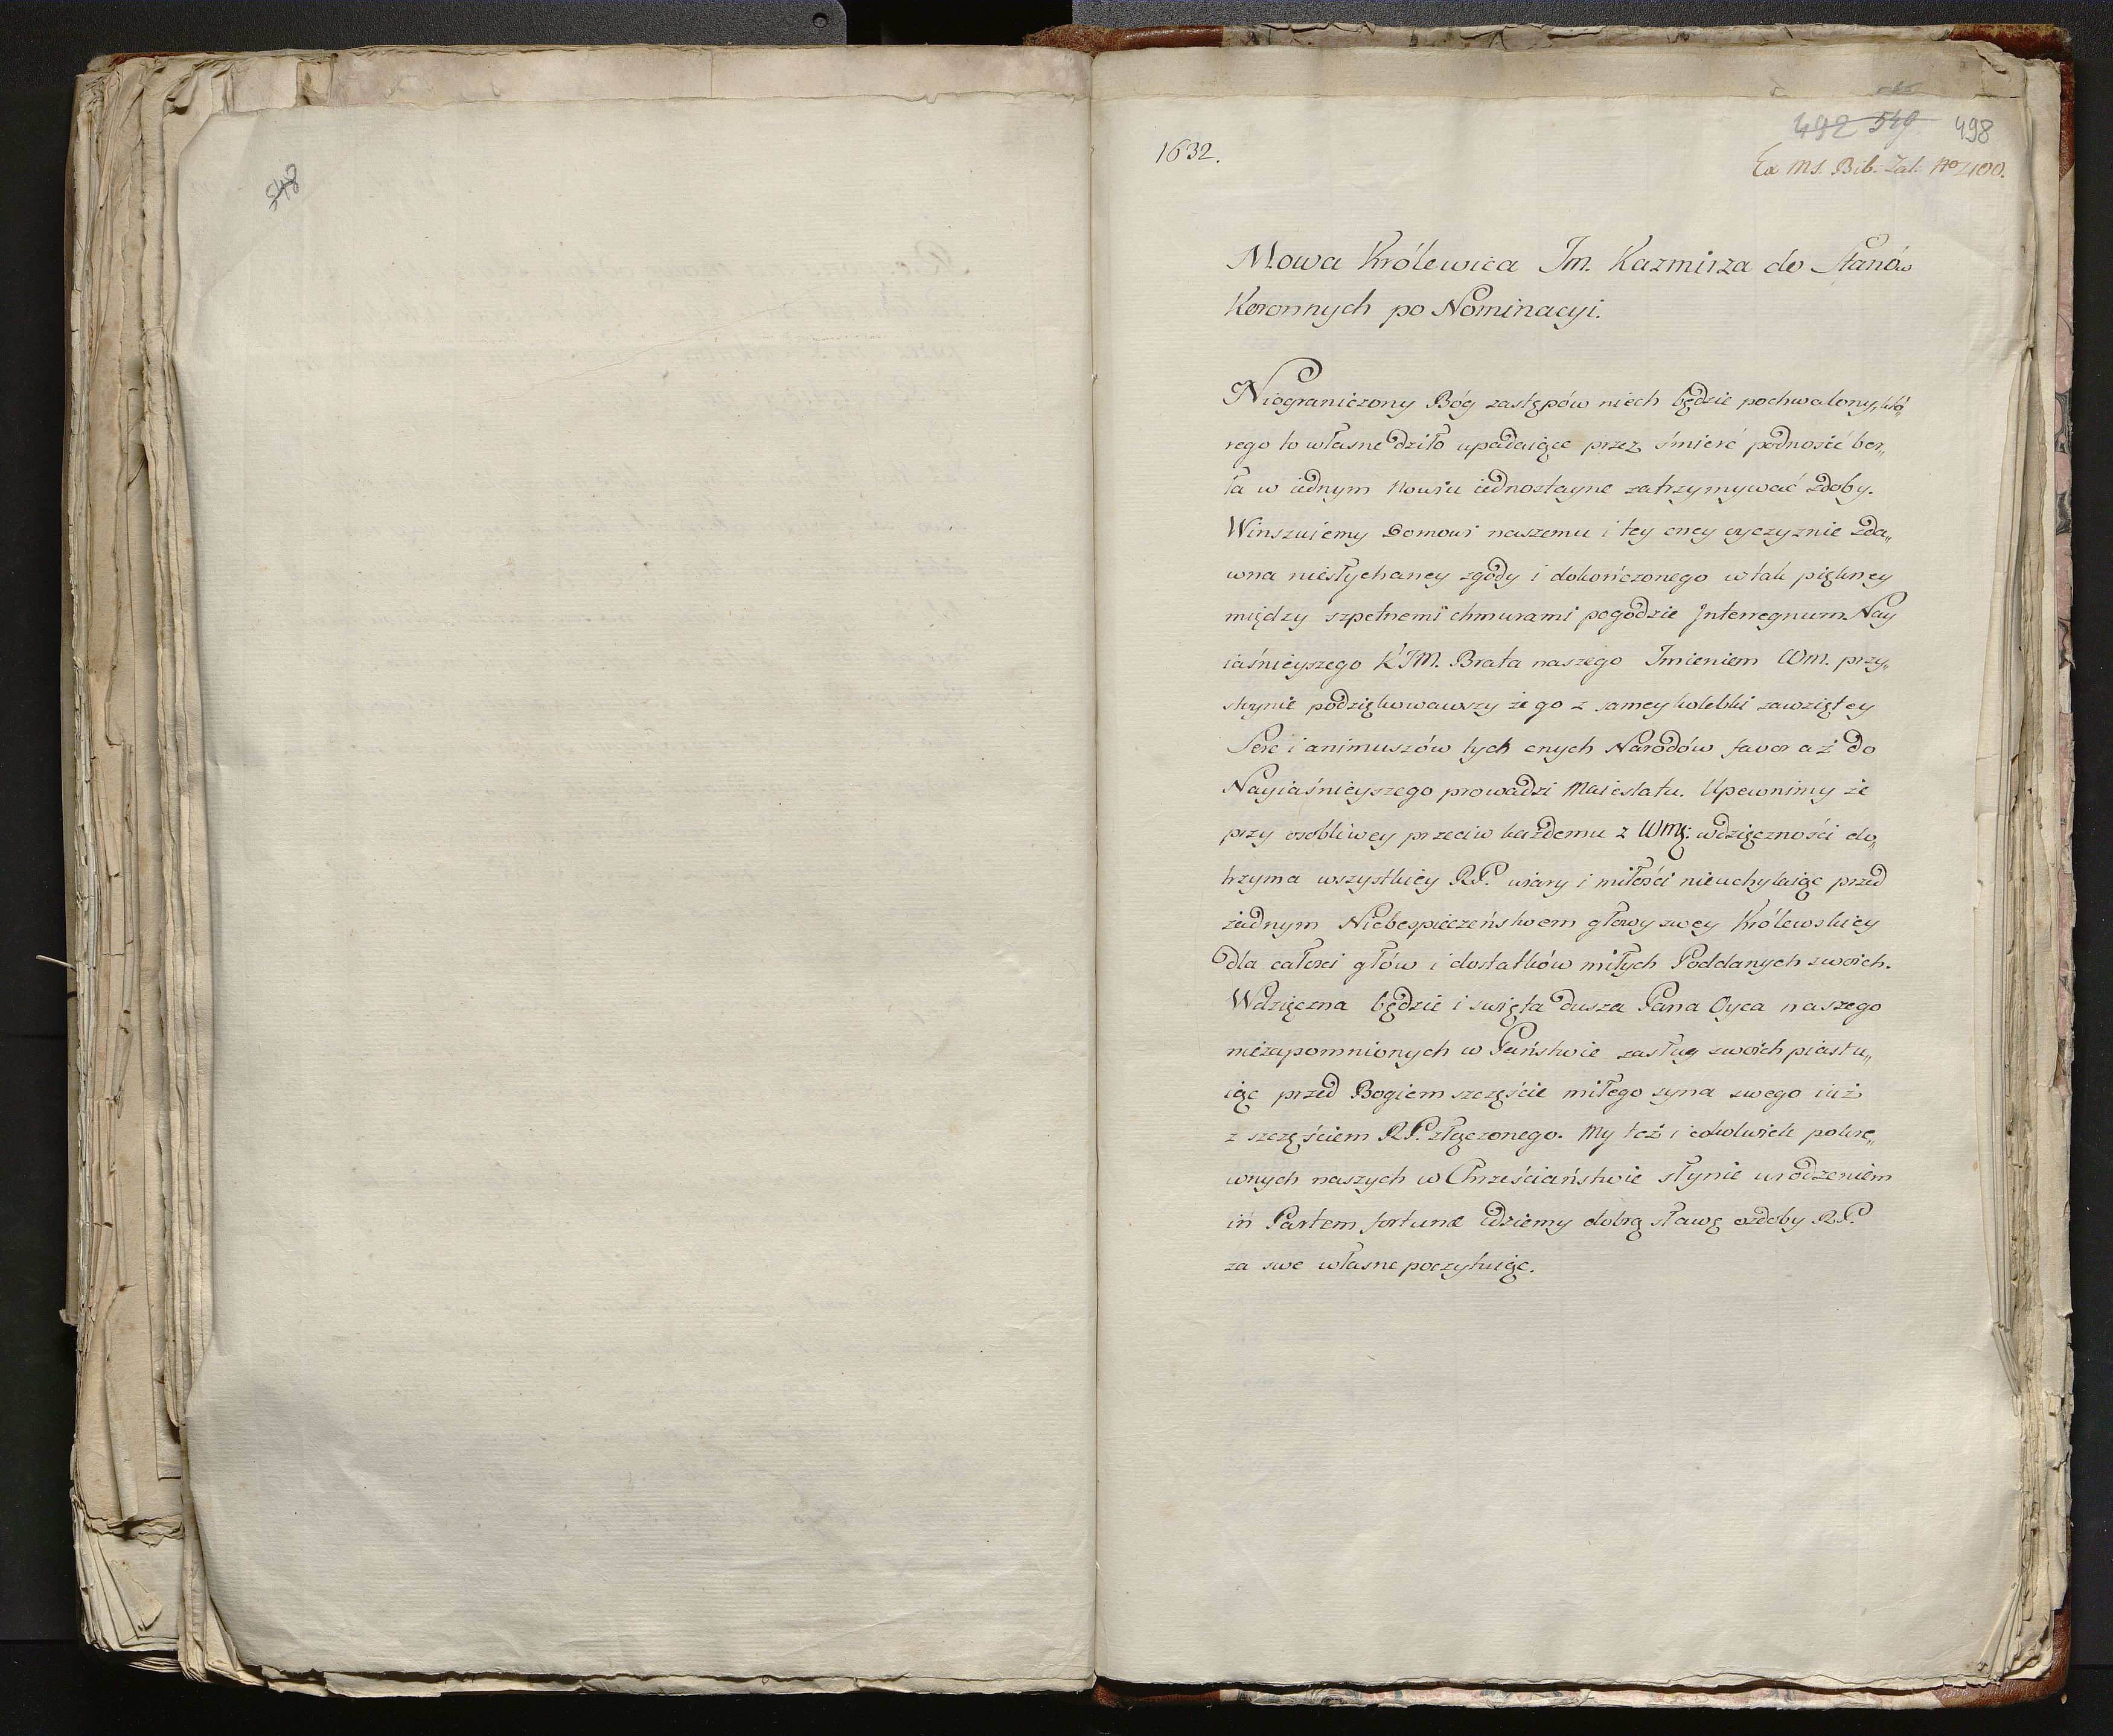 548
492 549 498
1632.
Ex Ms. Bib. Zal. No 400.
Mowa Królewica Im. Kazmirza do Stanów
Koronnych po Nominacyi.
Niograniczony Bóg zastępów niech będzie pochwalony, któ„
rego to własne dziło upadaiące przez śmierć podnosić ber„
ła w iednym
iednostayne zatrzymywać zdoby.
Winszuiemy Domowi naszemu i tey cney oyczyznie zda„
wna niesłychaney zgody i dokończonego w tak piękney
między szpetnemi chmurami pogodzie Interregnum Nay
iaśnieyszego K IM. Brata naszego Imieniem Wm. przy„
stoynie podziękowawszy że go z samey kolebki zawziętey
Serc i animuszów tych cnych Narodów favor aż do
Nayiaśnieyszego prowadzi Maiestatu. Upewnimy że
przy osobliwey przeciw każdemu z Wmę: wdzięczności do„
trzyma wszystkiey RP. wiary i miłości nieuchylaiąc przed
żadnym Niebespieczeństwem głowy swey Królewskiey
dla całości głów i dostatków miłych Poddanych swoich.
Wdzięczna będzie i swięta dusza Pana Oyca naszego
niezapomnionych w Państwie zasług swoich piastu„
iąc przed Bogiem szczęście miłego syna swego iuż
z szczęściem RP. złączonego. My też i cokolwiek pokre„
wnych naszych w Chrześciaństwie słynie urodzeniem
in Partem fortunæ idziemy dobrą sławę ozdoby RP.
za swe własne poczytuiąc.